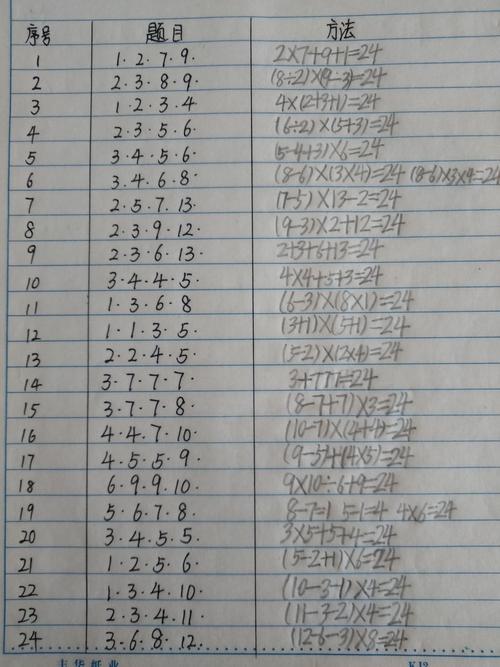 序号 题目 方法
1 1.2.7.9. 2×7+9+1=24
2 2.3.8.9. (8÷2)×(9-3)=24
3 1.2.3.4 4×(2+3+1)=24
4 2.3.5.6. (6÷2)×(5+3)=24
5 3.4.5.6. (5-4+3)×6=24
6 3.4.6.8. (8-6)×(3×4)=24 (8-6)×3×4=24
7 2.5.7.13. (7-5)×13-2=24
8 2.3.9.12. (9-3)×2+12=24
9 2.3.6.13. 2+3+6+13=24
10 3.4.4.5. 4×4+5+3=24
11 1.3.6.8 (6-3)×(8×1)=24
12 1.1.3.5. (3+1)×(5+1)=24
13 2.2.4.5. (5-2)×(2×4)=24
14 3.7.7.7. 3+777=24
15 3.7.7.8. (8-7+7)×3=24
16 4.4.7.10. (10-7)×(4+4)=24
17 4.5.5.9. (9-5)+(4×5)=24
18 6.9.9.10. 9×10÷6+9=24
19 5.6.7.8. 8-7=1 5-1=4 4×6=24
20 3.4.5.5. 3×5+5+4=24
21 1.2.5.6. (5-2+1)×6=24
22 1.3.4.10. (10-3-1)×4=24
23 2.3.4.11. (11-3-2)×4=24
24 3.6.8.12. (12-6-3)×8=24